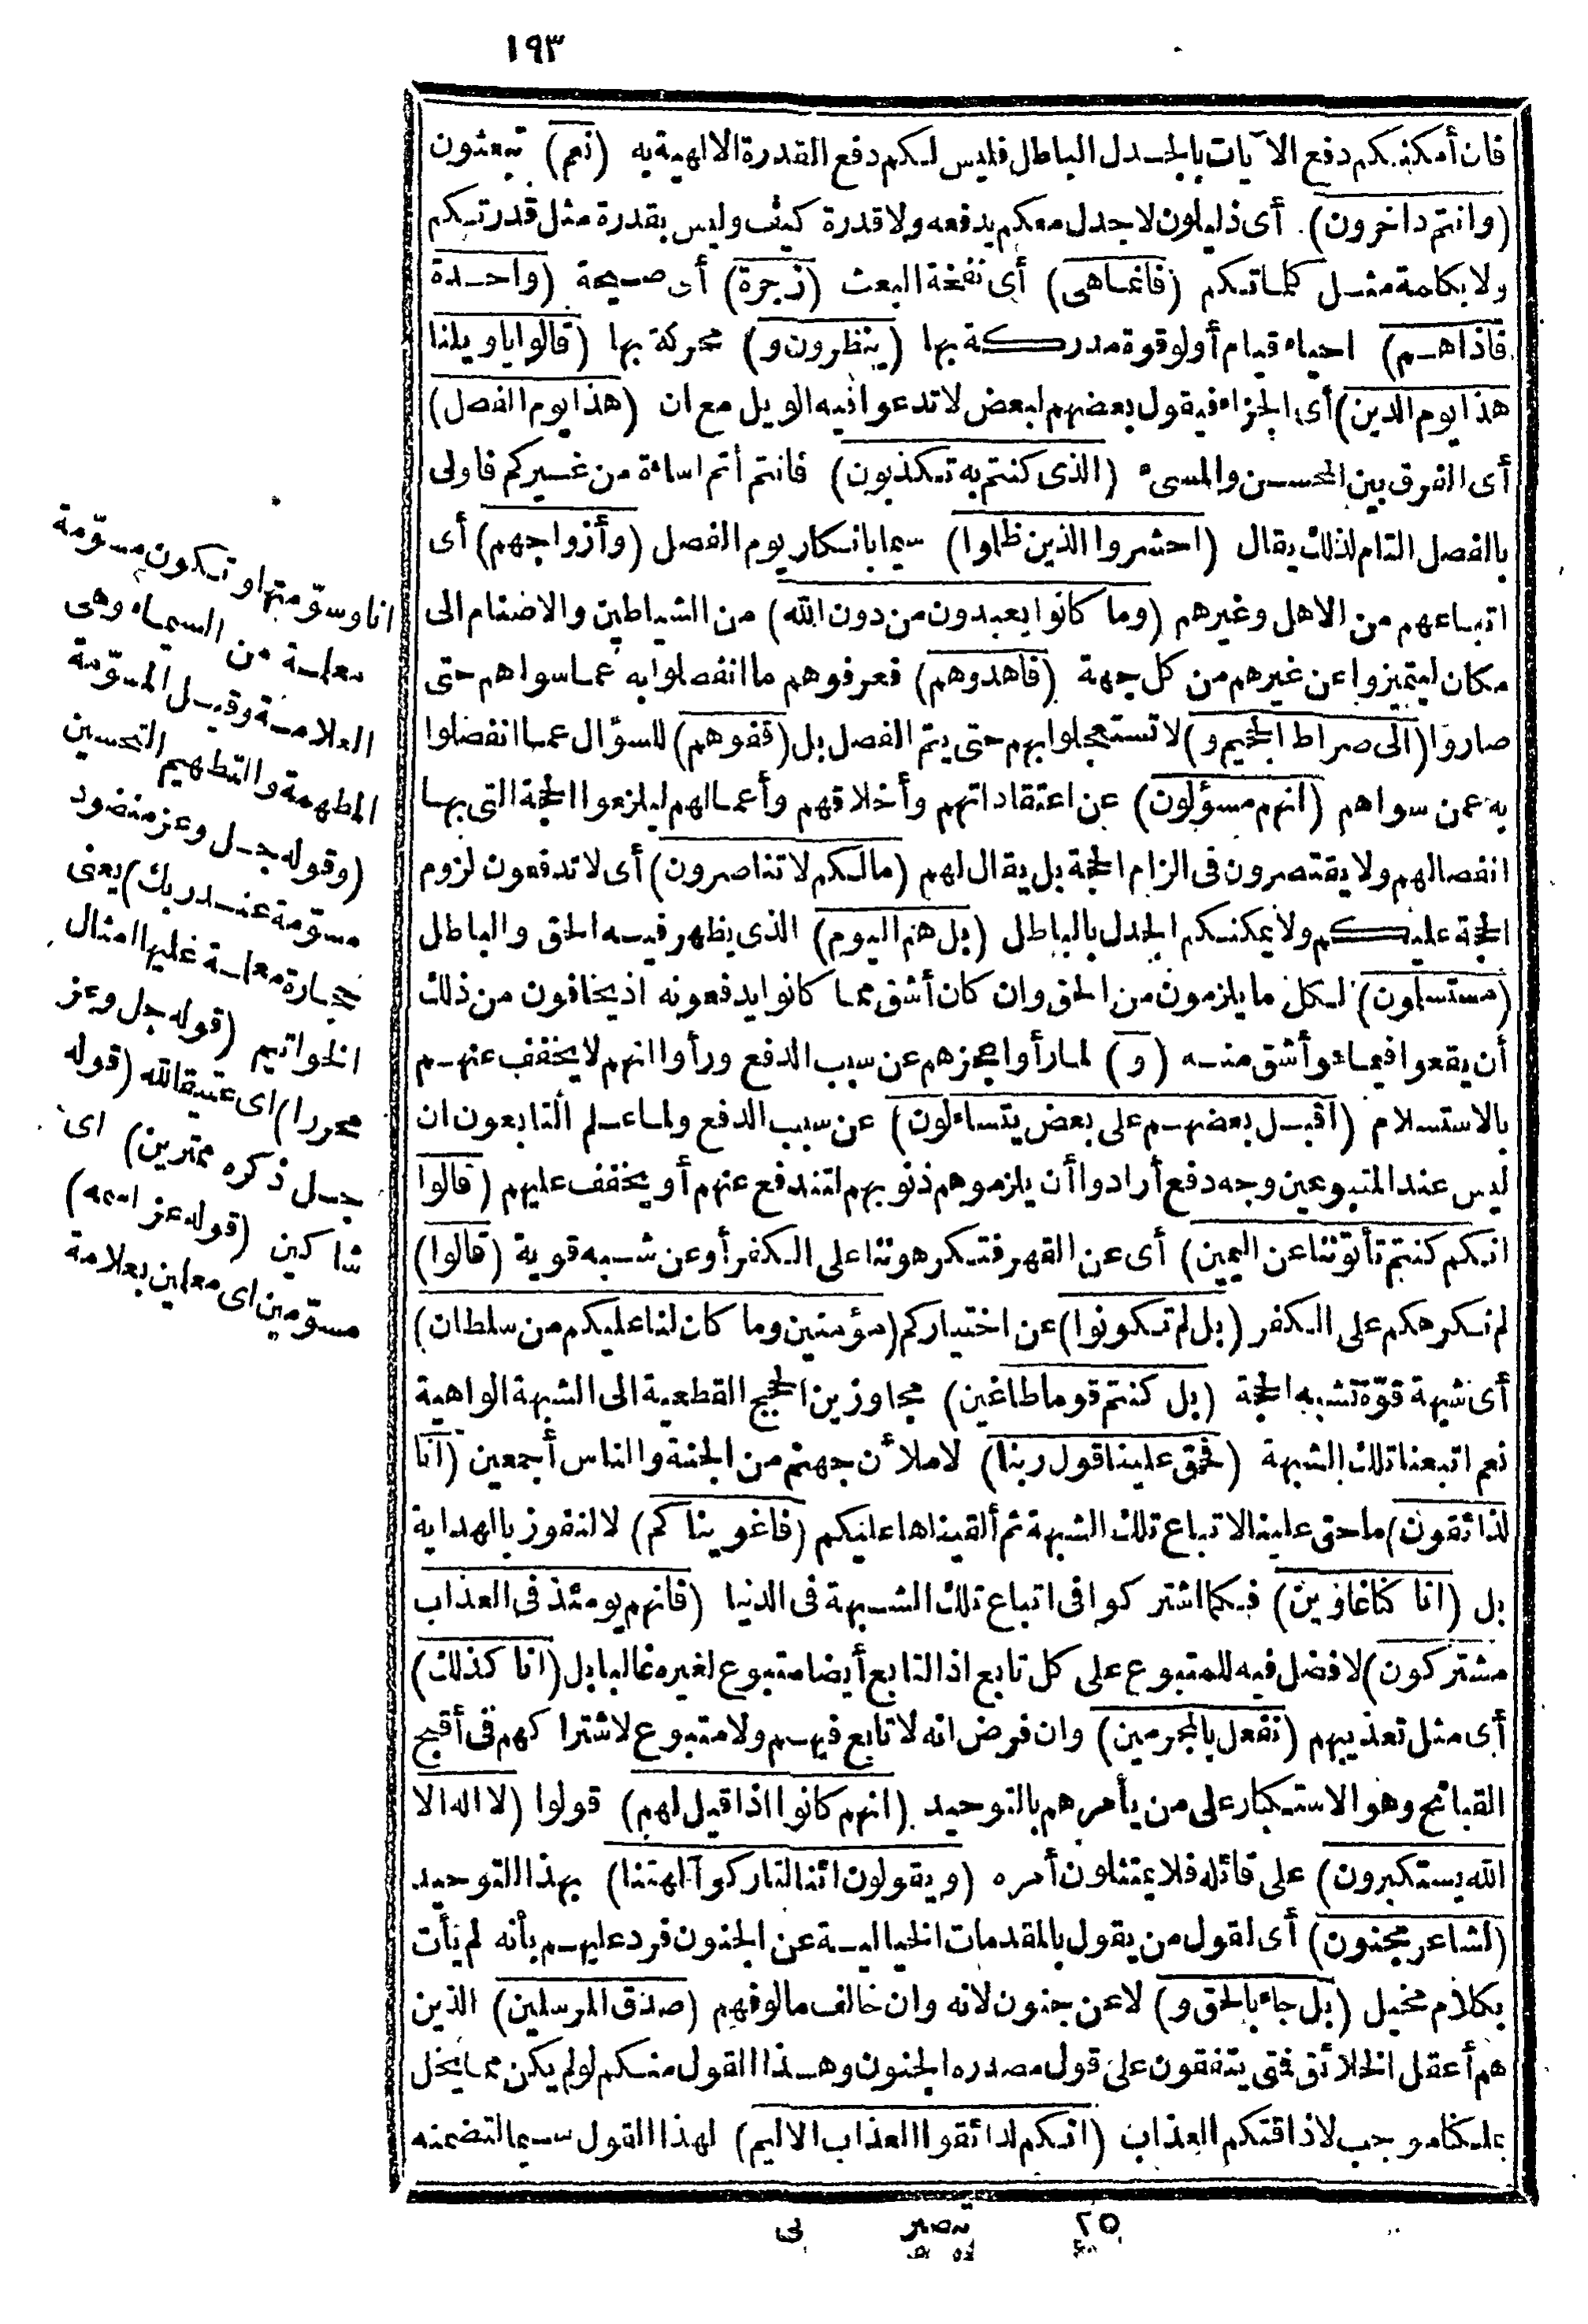 ١٩٣
فان أمكنكم دفع الآيات بالجدل الباطل فليس لكم دفع القدرة الالهية به (نعم) تبعثون
(وانتم داخرون) أى ذليلون لا جدل معكم يدفعه ولا قدرة كيف وليس بقدرة مثل قدرتكم
ولا بكامة مثل كلماتكم (فانماهى) أى نفخة البعث (زجرة) أى صيحة (واحدة
فاذاهم) احياء قيام أولو قوة مدركة بها (ينظرون و) محركة بها (قالوا ياويلنا
هذا يوم الدين) أى الجزاء فيقول بعضهم لبعض لا تدعوا فيه الويل مع ان (هذا يوم الفصل)
أى الفرق بين المحسن والمسىء (الذى كنتم به تكذبون) فانتم أتم اساءة من غيركم فاولى
بالفصل التام لذلك يقال (احشروا الذين ظلموا) سيما بانكار يوم الفصل (وأزواجهم) أى
اتباعهم من الاهل وغيرهم (وما كانوا يعبدون من دون الله) من الشياطين والاصنام الى
مكان ليتميزوا عن غيرهم من كل جهة (فاهدوهم) فعرفوهم ما انفصلوا به عما سواهم حتى
صاروا (الى صراط الجحيم و) لا تستعجلوا بهم حتى يتم الفصل بل (قفوهم) للسؤال عما انفصلوا
به عمن سواهم (انهم مسؤلون) عن اعتقاداتهم وأخلاقهم وأعمالهم ليلزموا الحجة التى بها
انفصالهم ولا يقتصرون فى الزام الحجة بل يقال لهم (مالكم لا تناصرون) أى لا تدفعون لزوم
الحجة عليكم ولا يمكنكم الجدل بالباطل (بل هم اليوم) الذى يظهر فيه الحق والباطل
(مستسلمون) لكل ما يلزمون من الحق وان كان أشق مما كانوا يدفعونه اذ يخافون من ذلك
أن يقعوا فيما هو أشق منه (و) لما رأوا عجزهم عن سبب الدفع ورأوا انهم لا يخفف عنهم
بالاستسلام (اقبل بعضهم على بعض يتساءلون) عن سبب الدفع ولما علم التابعون ان
ليس عند المتبوعين وجه دفع أرادوا أن يلزموهم ذنوبهم لتندفع عنهم أو يخفف عليهم (قالوا
انكم كنتم تأتوننا عن اليمين) أى عن القهر فتكرهوننا على الكفر أو عن شبه قوية (قالوا)
لم نكرهكم على الكفر (بل لم تكونوا) عن اختياركم (مؤمنين وما كان لنا عليكم من سلطان)
أى شبهة قوة تشبه الحجة (بل كنتم قوما طاغين) مجاوزين الحجج القطعية الى الشبهة الواهية
نعم اتبعنا تلك الشبهة (فحق علينا قول ربنا) لاملأن جهنم من الجنة والناس أجمعين (انا
لذائقون) ما حق علينا لاتباع تلك الشبهة ثم ألقيناها عليكم (فاغويناكم) لا لنفوز بالهداية
بل (انا كنا غاوين) فكما اشتركوا فى اتباع تلك الشبهة فى الدنيا (فانهم يومئذ فى العذاب
مشتركون) لا فضل فيه للمتبوع على كل تابع اذ التابع أيضا متبوع لغيره غالبا بل (انا كذلك)
أى مثل تعذيبهم (نفعل بالمجرمين) وان فرض انه لا تابع فيهم ولا متبوع لاشتراكهم فى أقبح
القبائح وهو الاستكبار على من يأمرهم بالتوحيد (انهم كانوا اذا قيل لهم) قولوا (لا اله الا
الله يستكبرون) على قائله فلا يمتثلون أمره (ويقولون ائنا لتاركوا آلهتنا) بهذا التوحيد
(لشاعر مجنون) أى لقول من يقول بالمقدمات الخيالية عن الجنون فرد عليهم بأنه لم يأت
بكلام مخيل (بل جاء بالحق و) لا عن جنون لانه وان خالف مالوفهم (صدق المرسلين) الذين
هم أعقل الخلائق فمتى يتفقون على قول مصدره الجنون وهذا القول منكم لو لم يكن مما يخل
عليكم موجب لاذاقتكم العذاب (انكم لذائقوا العذاب الاليم) لهذا القول سيما لتضمنه
اناوسوّمتها وتكون مسوّمة
معلمة من السيماء وهى
العلامة وقيل المسوّمة
المطهمة والتطهيم التحسين
(وقوله جل وعز منضود
مسوّمة عند ربك) يعنى
حجارة معلمة عليها امثال
الخواتيم (قوله جل وعز
محررا) اى عتيقا لله (قوله
جل ذكره ممترين) اى
شاكين (قوله عز اسمه)
مسوّمين اى معلمين بعلامة
٢٥ تبصير نى